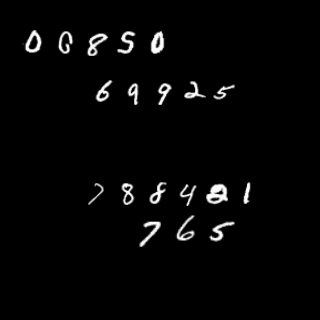 00850
69925
788421
765